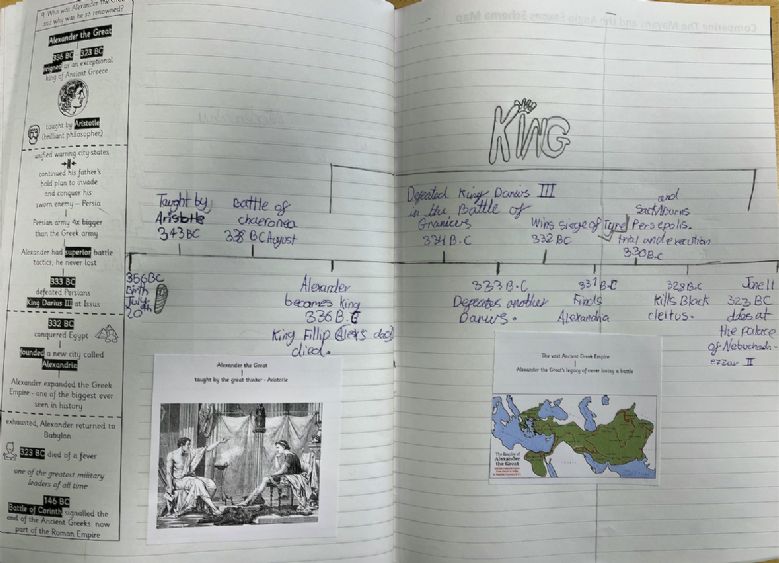 9. Who was Alexander the Great
and why was he so renowned?
Alexander the Great
336 BC 323 BC
reigned as an exceptional
king of Ancient Greece
taught by Aristotle
(brilliant philosopher)
unified warring city-states
continued his father's
bold plan to invade
and conquer his
sworn enemy - Persia
Persian army 4x bigger
than the Greek army
Alexander had superior battle
tactics, he never lost
333 BC
defeated Persians
King Darius III at Issus
332 BC
conquered Egypt
founded a new city called
Alexandria
Alexander expanded the Greek
Empire - one of the biggest ever
seen in history
exhausted, Alexander returned to
Babylon
323 BC died of a fever
one of the greatest military
leaders of all time
146 BC
Battle of Corinth signalled the
end of the Ancient Greeks now
part of the Roman Empire
Taught by
Aristotle
343 BC
Battle of
chaeronea
338 BC August
356 BC
Birth
July
20th
Alexander
becomes king
336 B.C
King Fillip (Alex's dad)
died.
Alexander the Great
taught by the great thinker - Aristotle
Comparing The Mayans and the Anglo Saxons Schema Map
KING
Defeated King Darius III
in the Battle of
Granicus
334 B.C
Wins siege of Tyre
332 BC
and
Persepolis.
trial and execution
330 BC
333 B.C
Defeates another
Darius.
331 B.C
Finds
Alexandria
328 B.C
Kills Black
cleitus.
June 11
323 BC
dies at
the palace
of Nebuchadn-
ezzar II
The vast Ancient Greek Empire
Alexander the Great's legacy of never losing a battle
The Empire of
Alexander
the Great